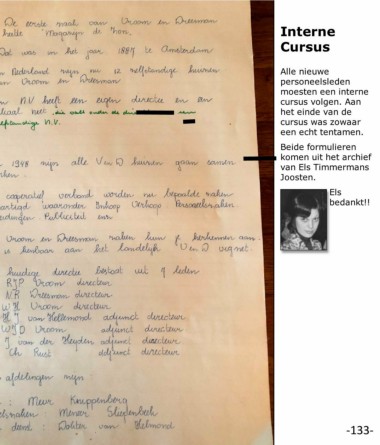 De eerste naal van Vroom en Dreesman
heette 'Magazijn de Zon,
Dat was in het jaar 1887 te Amsterdam
Nederland zijn nu 12 zelfstandige huizen
van Vroom en Dreesman
N.V. heeft een eigen directie en een
zelfstandige N.V.
1948 zijn alle V en D huizen gaan samen
coöperatief verband worden nu bepaalde zaken
waaronder Inkoop Verkoop Personeelszaken
Publiciteit enz
Vroom en Dreesman zaken kun je herkennen aan
is kenbaar aan het landelijk V en D vignet.
huidige directie bestaat uit 9 leden
RJP Vroom directeur
NR Dreesman directeur
W H Vroom directeur
H J van Hellemond adjunct directeur
WJD Vroom adjunct directeur
J van der Heyden adjunct directeur
Ch Rust adjunct directeur
afdelingen zijn
: Meur Knippenberg
: Meneer Sliepenbech
: Dokter van Helmond
Interne
Cursus
Alle nieuwe
personeelsleden
moesten een interne
cursus volgen. Aan
het einde van de
cursus was zowaar
een echt tentamen.
Beide formulieren
komen uit het archief
van Els Timmermans
Joosten.
Els
bedankt!!
-133-